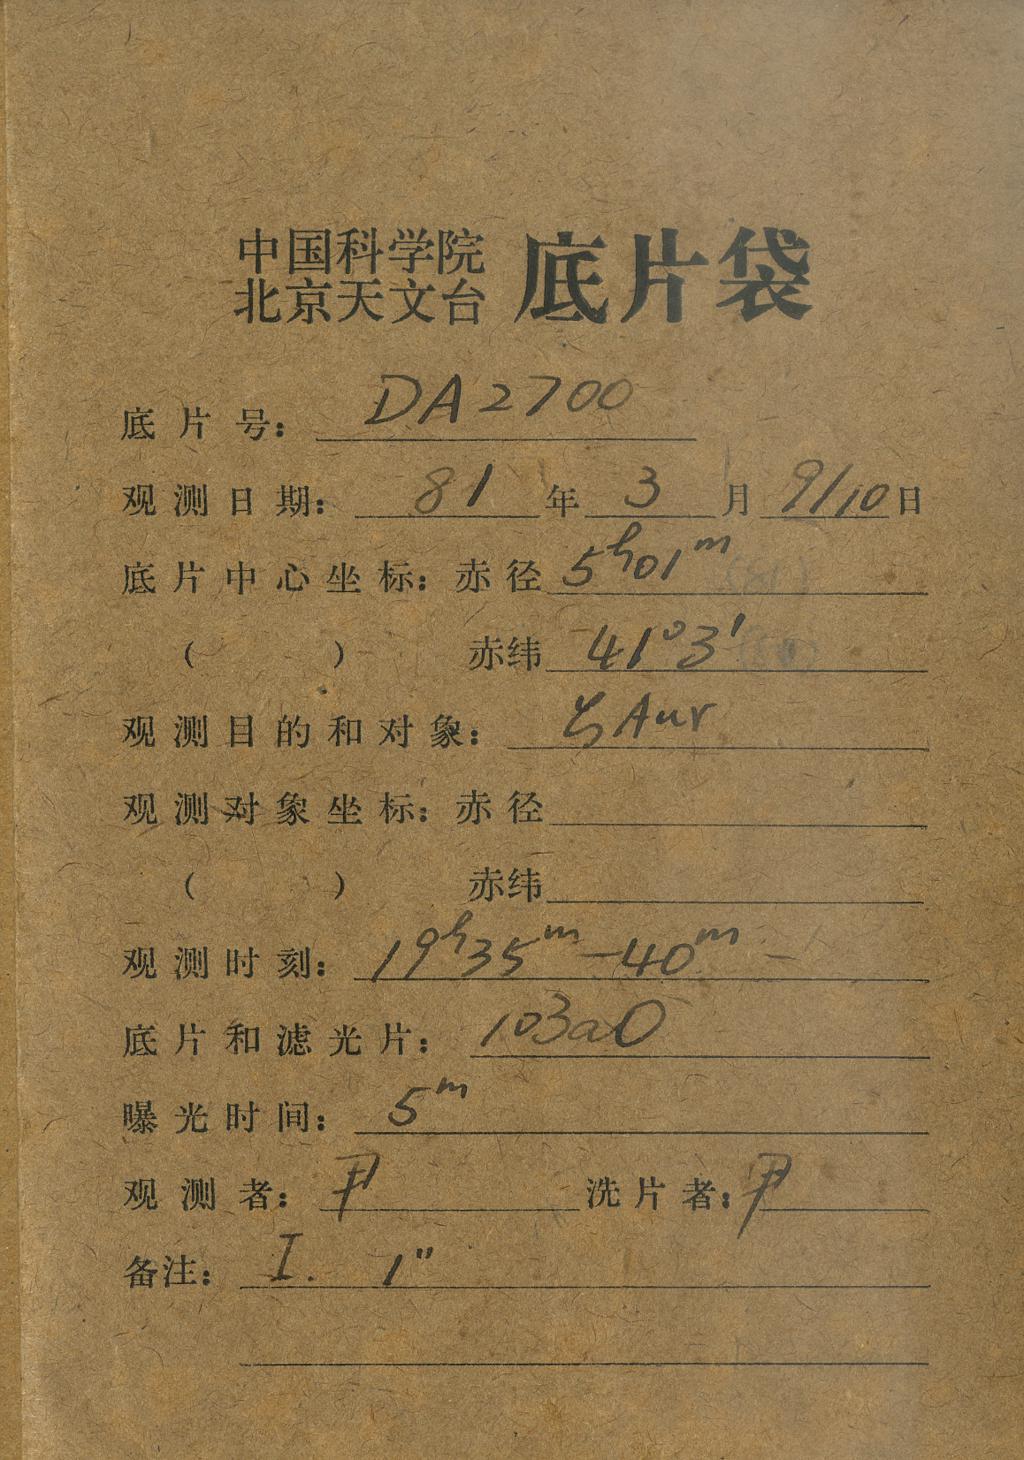 中国科学院
北京天文台 底片袋
底片号：DA2700
观测日期：81年3月9/10日
底片中心坐标：赤径5h01m (81)
（　　）赤纬41°3′
观测目的和对象：ζ Aur
观测对象坐标：赤径
（　　）赤纬
观测时刻：19h35m—40m
底片和滤光片：103aO
曝光时间：5m
观测者：尹 洗片者：尹
备注：I. 1″